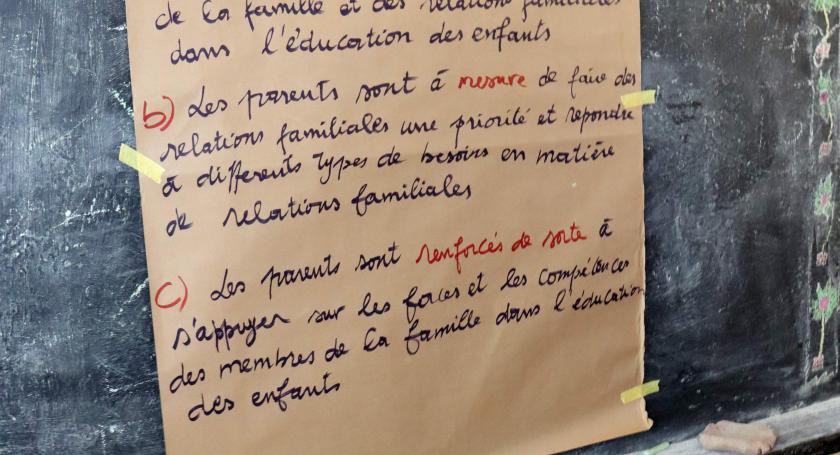 de la famille et des relations familiales
dans l'éducation des enfants
b) Les parents sont à mesure de faire des
relations familiales une priorité et repondre
à differents types de besoins en matière
de relations familiales
c) Les parents sont renforcés de sorte à
s'appuyer sur les forces et les compétences
des membres de la famille dans l'éducation
des enfants